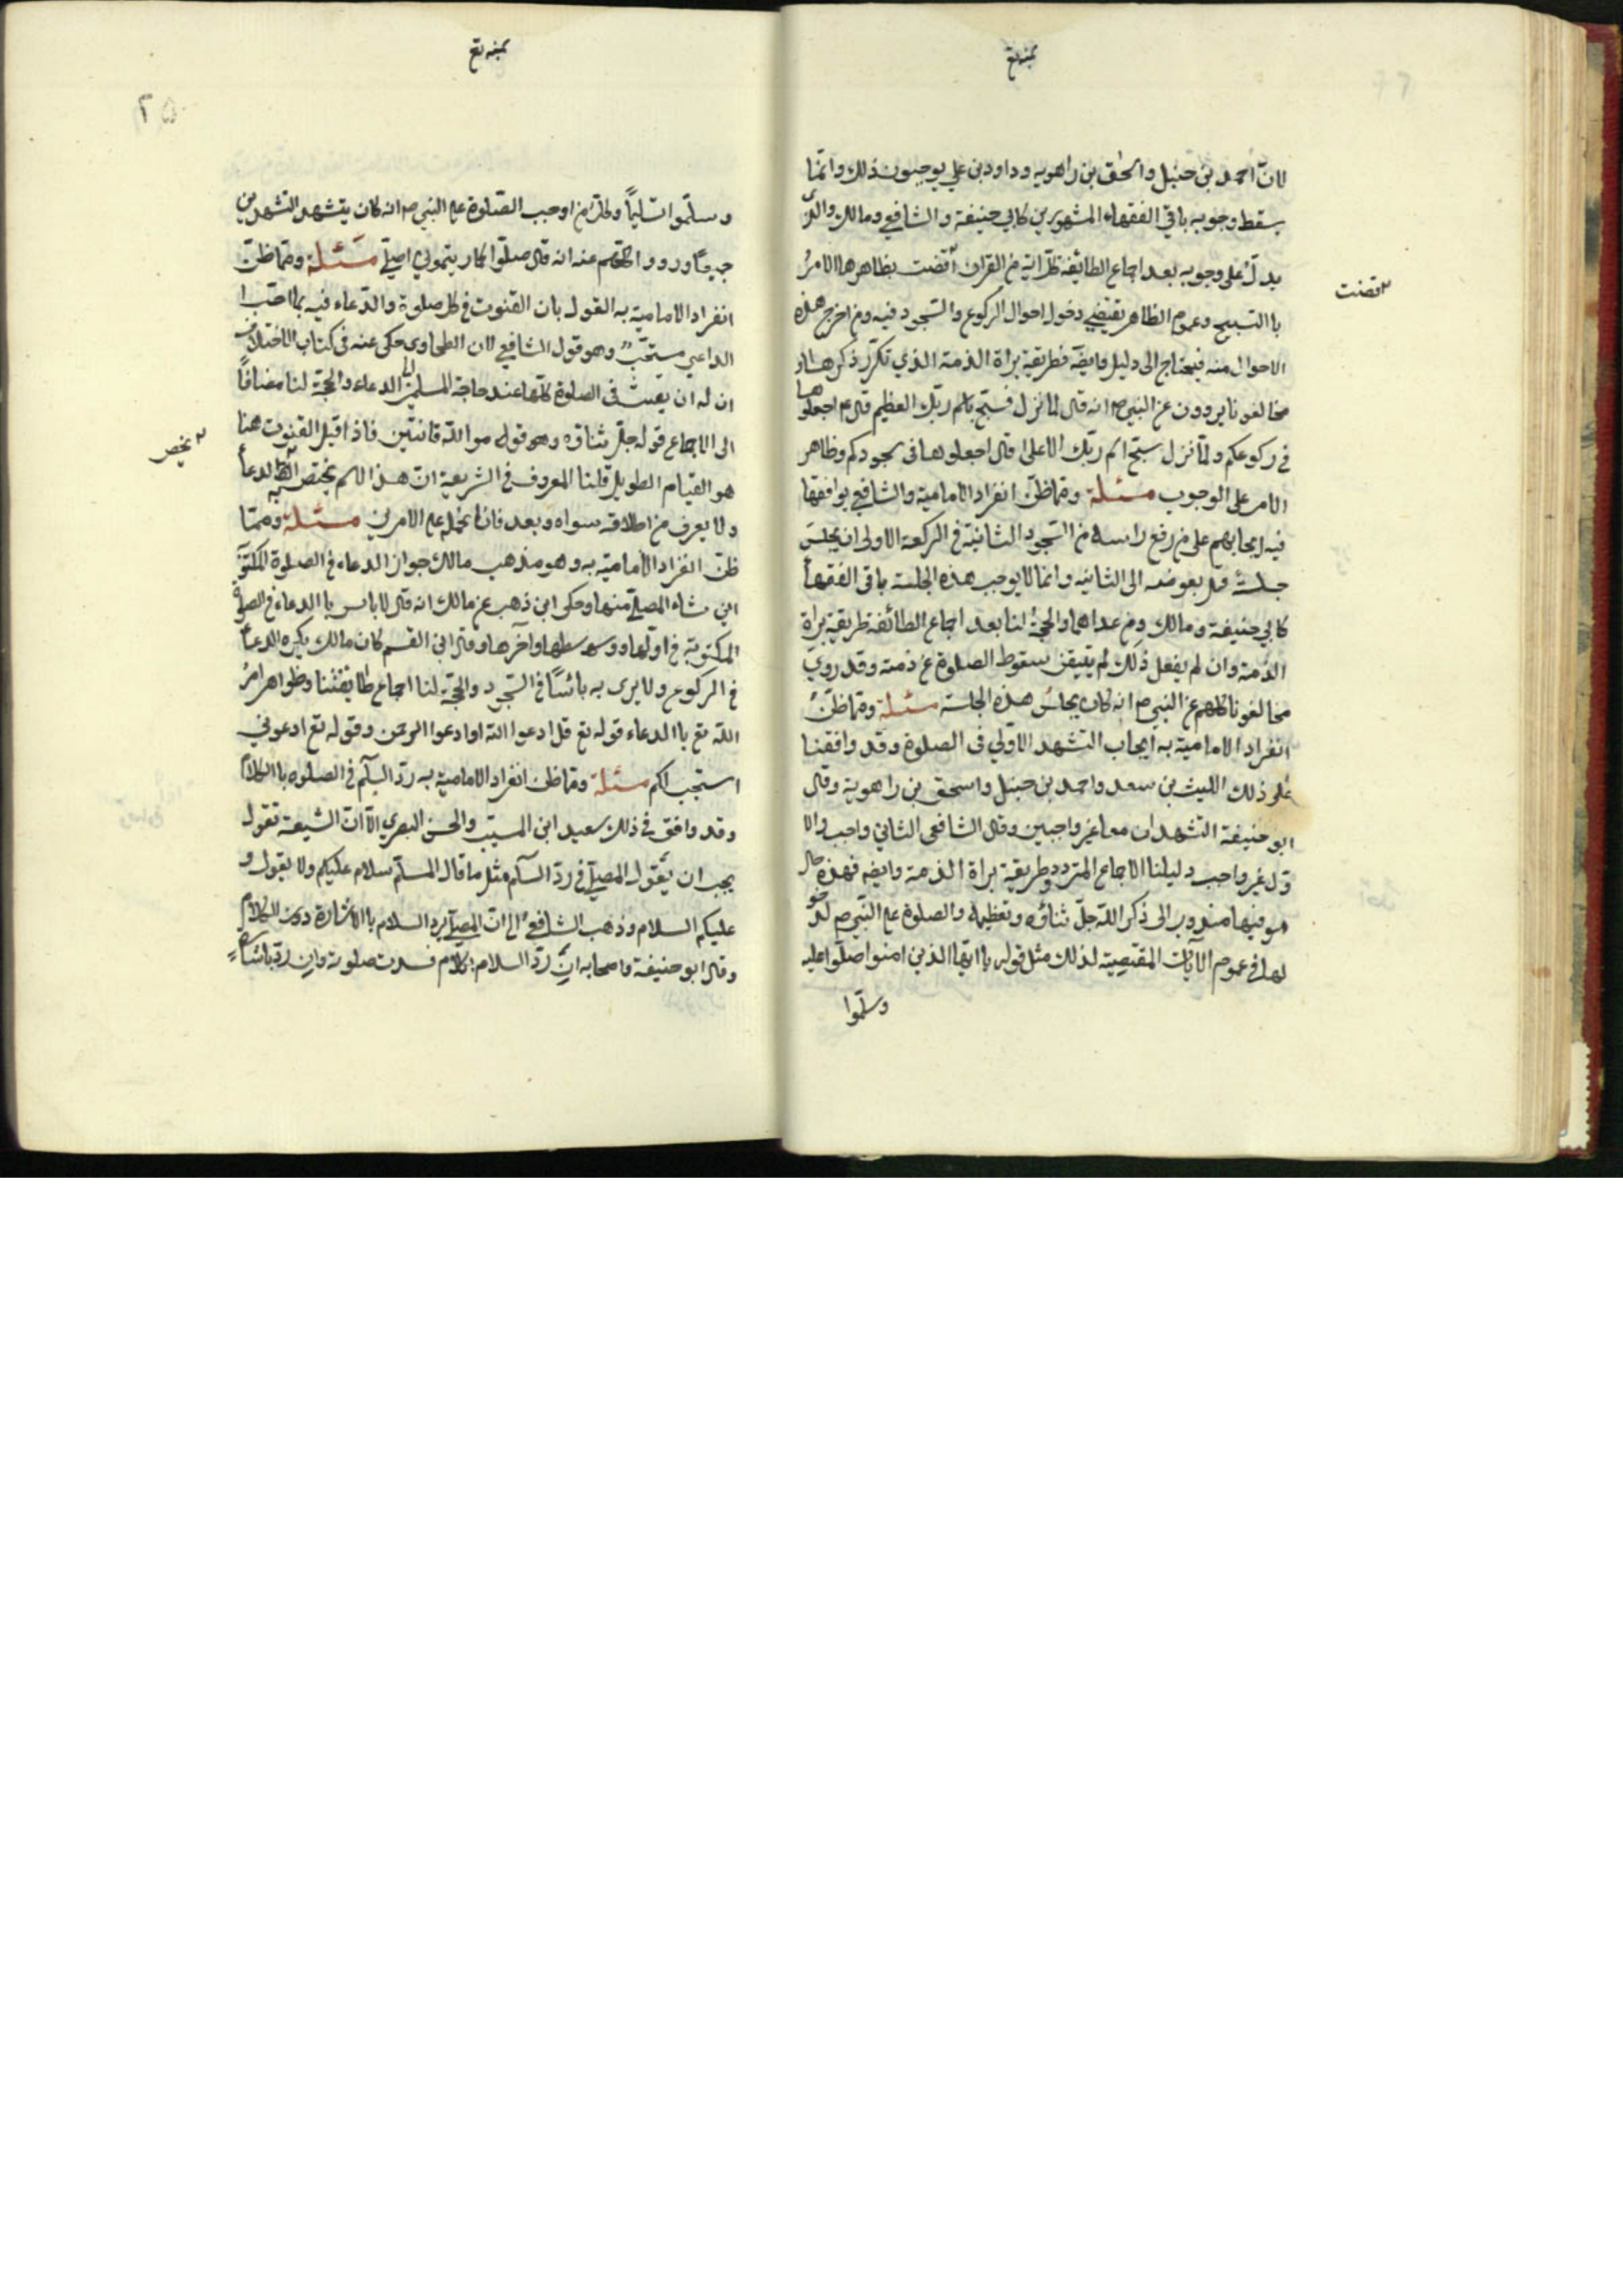 يمنه تع
لان احمد بن حنبل واسحق بن راهويه وداود بن علي يوجبون ذلك وانما
يسقط وجوبه باقي الفقهاء المشهورين كابي حنيفة والشافعي ومالك والذي
يدل على وجوبه بعد اجماع الطائفة كل اية من القران اقضت بظاهرها الامر
با التسبيح وعموم الظاهر يقتضي دخول احوال الركوع والسجود فيه ومن اخرج هذه
الاحوال منه فيحتاج الى دليل وايضه فطريقة براة الذمة الذي تكرر ذكرها و
مخالفونا يروون عن النبي ص انه قال لما نزل فسبح باسم ربك العظيم قال ع اجعلوها
في ركوعكم ولما نزل سبح اسم ربك الاعلى قال اجعلوها في سجودكم وظاهر
الامر على الوجوب مسئلة ومما ظن انفراد الامامية والشافعي يوافقها
فيه ايجابهم على من رفع راسه من السجود الثانية في الركعة الاولى ان يجلس
جلسة قبل نهوضه الى الثانيه وانما لا يوجب هذه الجلسة باقي الفقهاء
كابي حنيفة ومالك ومن عداهما والحجة لنا بعد اجماع الطائفة طريقة براة
الذمة وان لم يفعل ذلك لم يتيقن سقوط الصلوة عن ذمته وقد روي
مخالفونا كلهم عن النبي ص انه كان يجلس هذه الجلسة مسئلة ومما ظن
انفراد الامامية به ايجاب التشهد الاولي في الصلوة وقد وافقنا
على ذلك الليث بن سعد واحمد بن حنبل واسحق بن راهوية وقال
ابو حنيفة التشهدان معا غير واجبين وقال الشافعي الثاني واجب والا
ول غير واجب دليلنا الاجماع المتردد وطريقة براة الذمة وايضه فهذه حال
هو فيها مندوب الى ذكر الله جل ثناؤه وتعظيمه والصلوة على النبي ص لدخو
لها في عموم الآيات المقتصية لذلك مثل قوله يا ايها الذين امنوا صلوا عليه
وسلموا
٢ قضت
يمنه تع
٢٥
وسلموا تسليماً وكل من اوجب الصلوة على النبي ص انه كان يتشهد التشهدين
جميعاً ورووا كلهم عنه انه قال صلوا كما ريتموني اصلي مسئلة ومما ظن
انفراد الامامية به القول بان القنوت في كل صلوة والدعاء فيه بما احب
الداعي مستحب وهو قول الشافعي لان الطحاوي حكى عنه في كتاب الاختلاف
ان له ان يقنت في الصلوة كلها عند حاجة المسلمين الى الدعاء والحجة لنا مضافاً
الى الاجماع قوله جل ثناؤه وهو قوموا لله قانتين فاذا قيل القنوت هنا
هو القيام الطويل قلنا المعروف في الشريعة ان هذا الاسم يختص الدعاء
ولا يعرف من اطلاقه سواه وبعد فانا نحمله على الامرين مسئلة ومما
ظن انفراد الامامية به وهو مذهب مالك جواز الدعاء في الصلوة المكتوبة
اين شاء المصلي منها وحكى ابن ذهب عن مالك انه قال لا باس با الدعاء في الصلوة
المكتوبة في اولها ووسطها وآخرها وقال ابن القسم كان مالك يكره الدعاء
في الركوع ولا يرى به بائساً في السجود والحجة لنا اجماع طايفتنا وظواهر امر
الله تع با الدعاء قوله تع قل ادعوا الله او ادعوا الرحمن وقوله تع ادعوني
استجب لكم مسئلة ومما ظن انفراد الامامية به رد السلام في الصلوه با الكلام
وقد وافق في ذلك سعيد ابن المسيب والحسن البصري الا ان الشيعة تقول
يجب ان يقول المصلي في رد السلام مثل ما قال المسلم سلام عليكم ولا يقول و
عليكم السلام وذهب الشافعي الى ان المصلي يرد السلام با الاشارة دون الكلام
وقال ابو حنيفة واصحابه ان رد السلام بكلام فسدت صلوته وان رد باشارة
٢ يختص